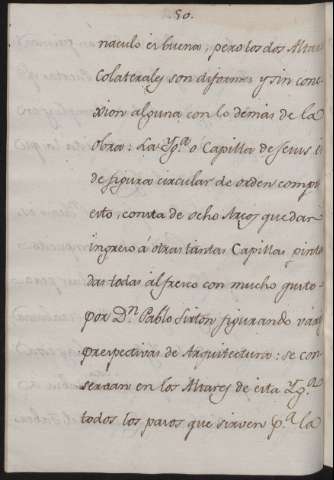 50.
naculo es buena, pero los dos Altar
colaterales son diformes y sin cone
xion alguna con lo demas de la
obra: La Ygª. o Capilla de Jesus e
de figura circular de orden comp
esto, consta de ocho Arcos que dan
ingreso á otras tantas Capillas, pinta
das todas al fresco con mucho gusto
por Dn. Pablo Sistori figurando va
prespectivas de Arquitectura: se con
servan en los Altares de esta Ygª.
todos los pasos que sirven pª. la